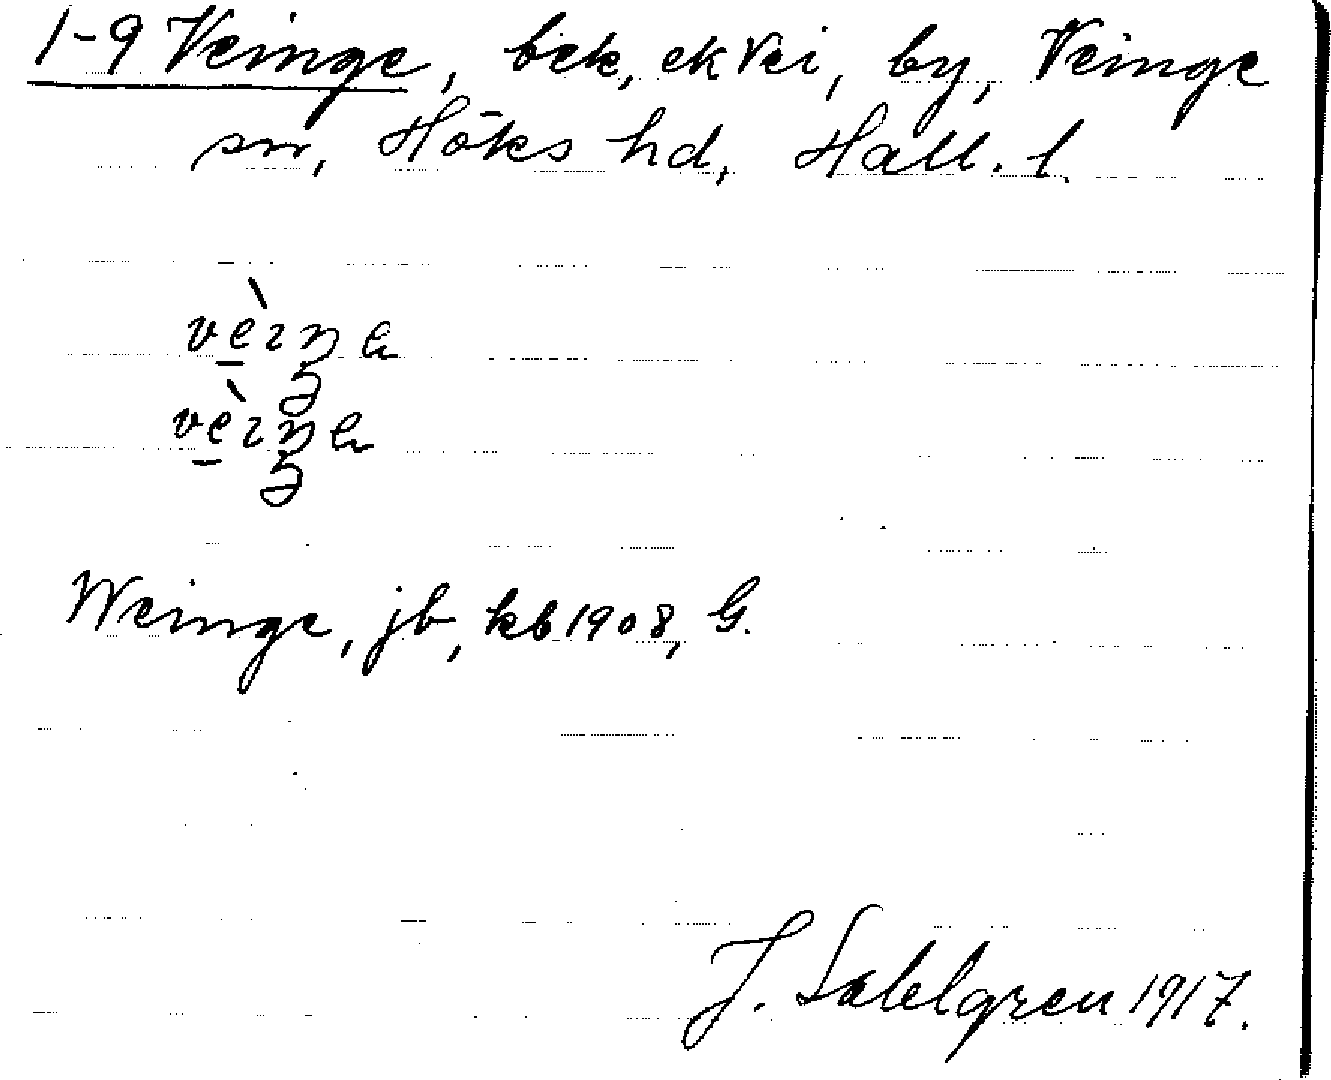 1-9 Veinge, bek, ek Vei, by, Veinge
sn, Höks hd, Hall. l.
Weinge, jb, kb 1908, G.
J. Sahlgren 1917.